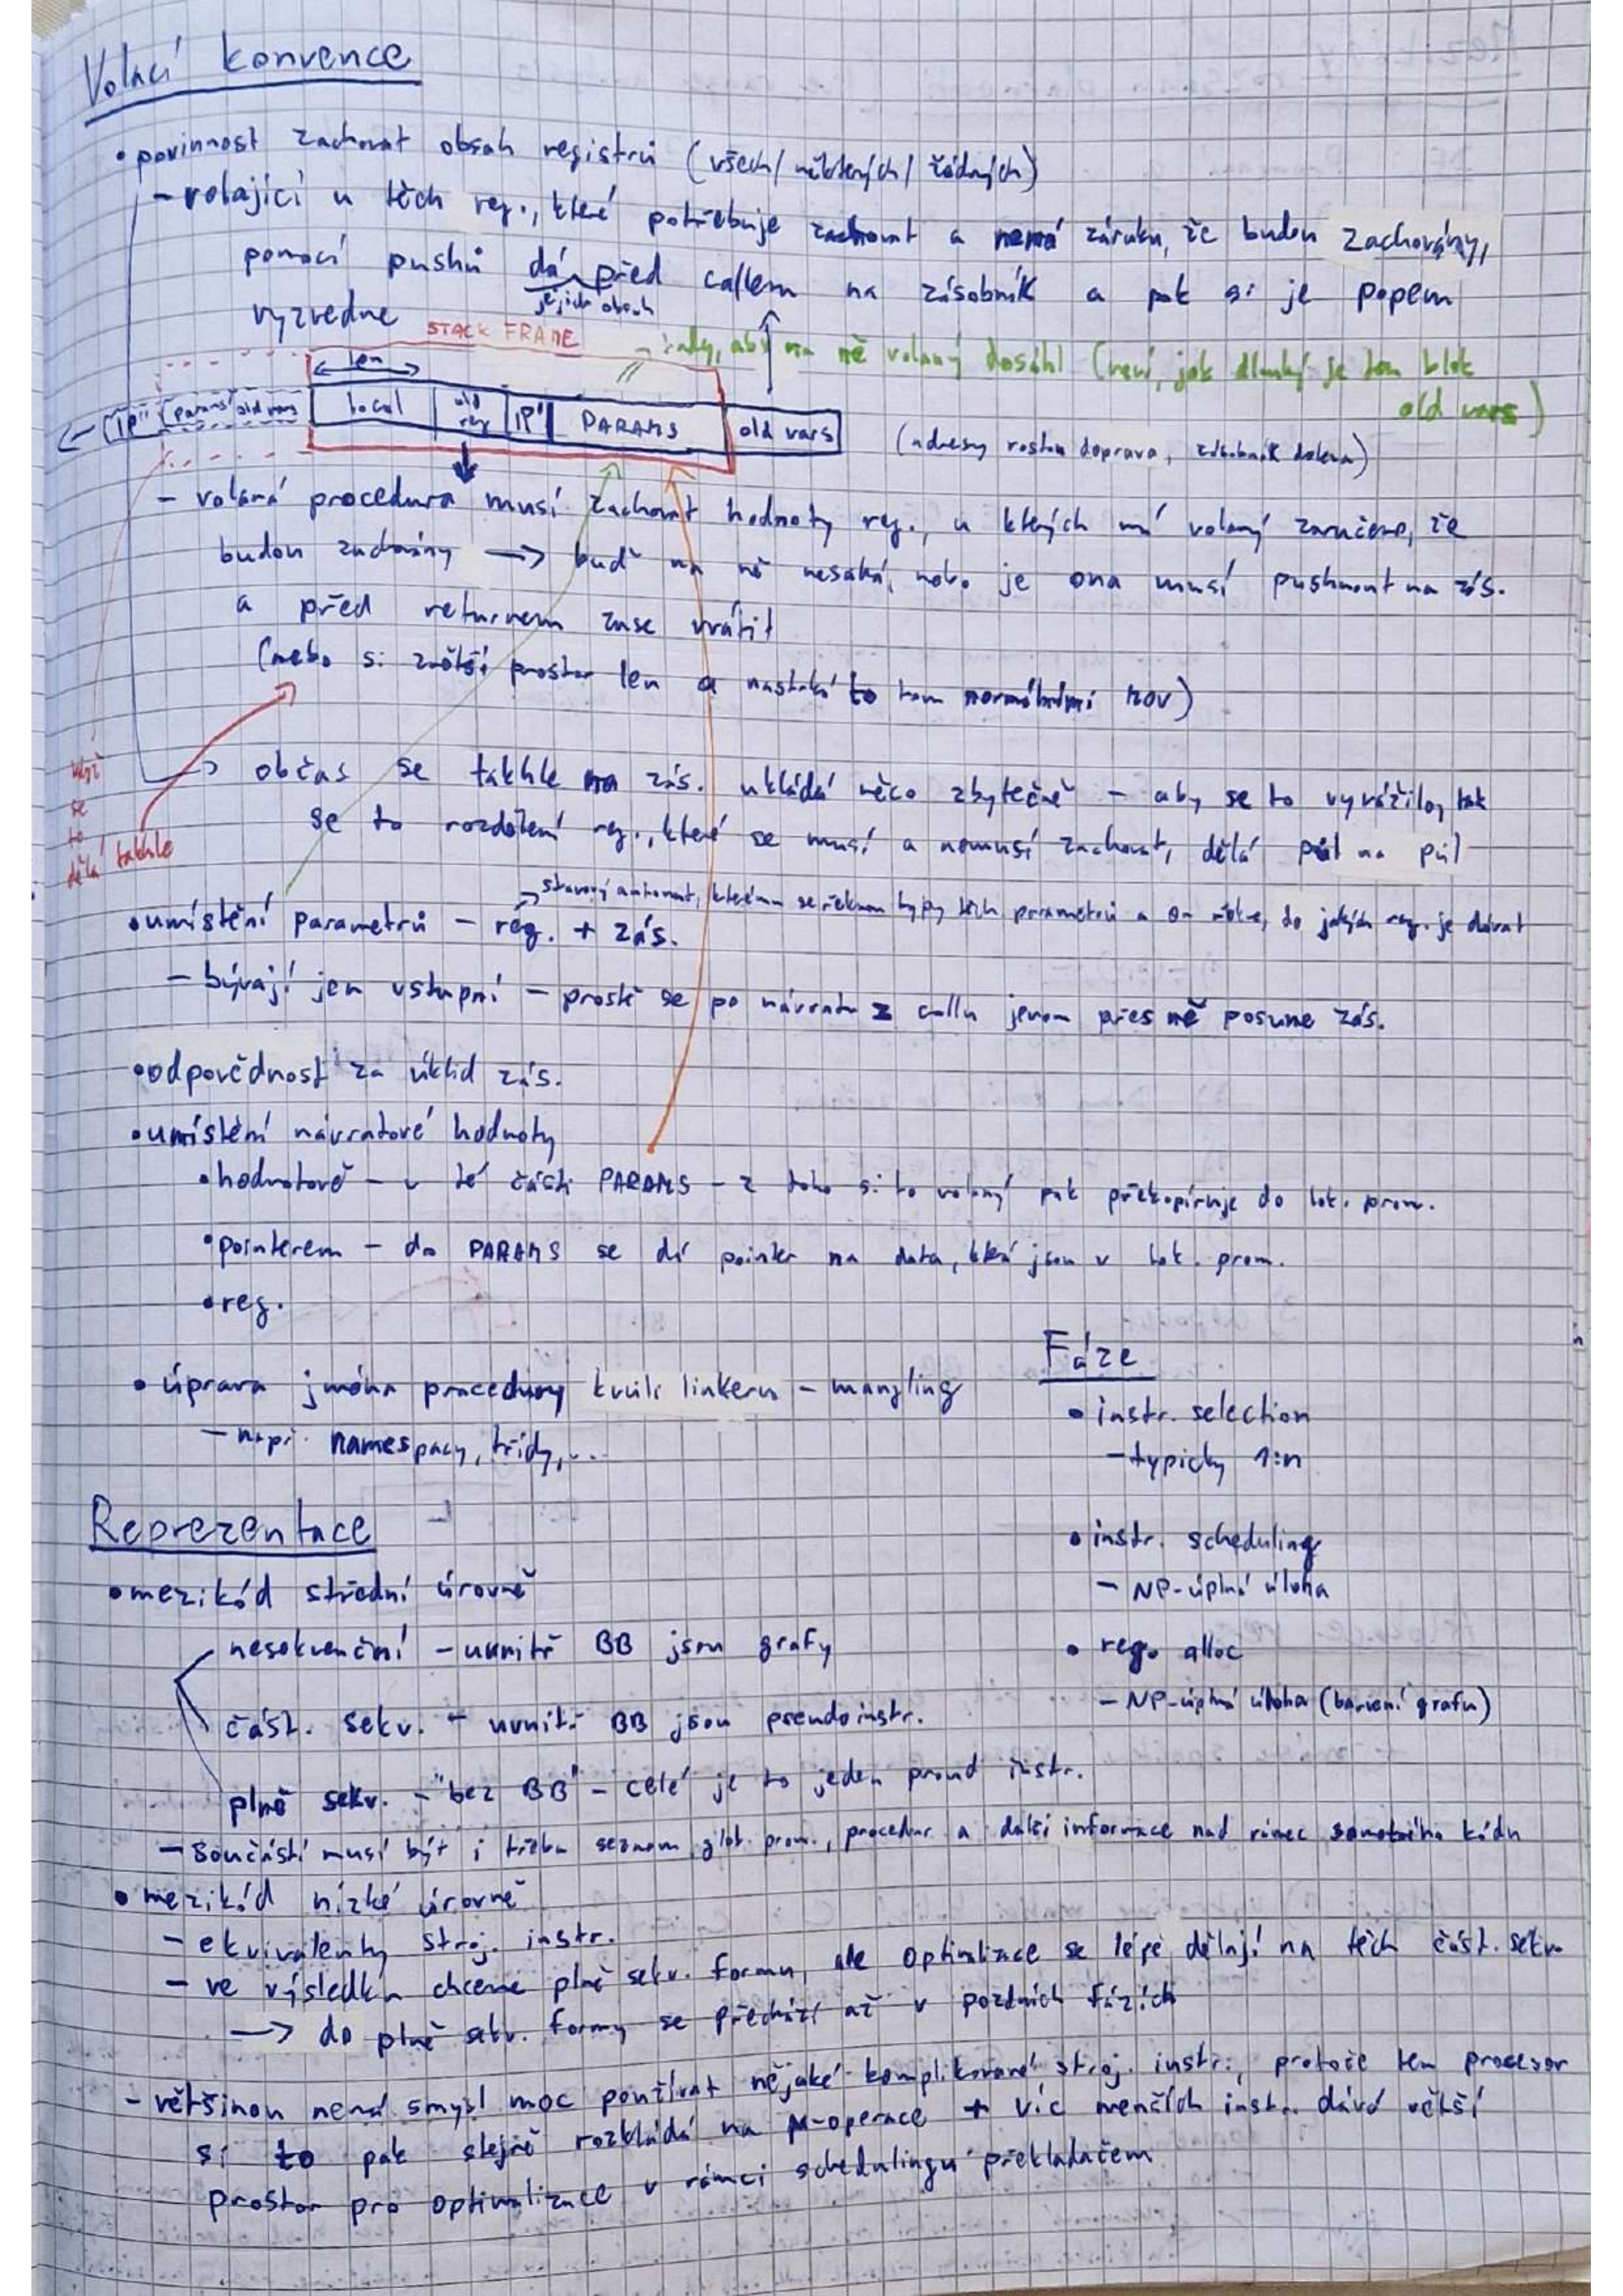 Volací konvence
• povinnost zachovat obsah registrů (všech/některých/žádných)
- volající u těch reg., které potřebuje zachovat a nemá záruku, že budou zachovány,
pomocí pushů dá před callem na zásobník a pak si je popem
jejich obsah
vyzvedne
STACK FRAME
tady, aby na ně volaný dosáhl (neví, jak dlouhý je ten blok
old vars)
len
IP'' params' old vars local old reg IP' PARAMS old vars
(adresy rostou doprava, zásobník doleva)
- volaná procedura musí zachovat hodnoty reg., u kterých má volaný zaručeno, že
budou zachovány → buď na ně nesahá, nebo je ona musí pushnout na zás.
a před returnem zase vrátit
(nebo si zvětší prostor len a nastaká to tam normálními MOV)
když
se
to
dělá takhle
→ občas se takhle na zás. ukládá něco zbytečně - aby se to vyvážilo, tak
se to rozdělení reg., které se musí a nemusí zachovat, dělá půl na půl
→ stavový automat, kterému se řeknou typy těch parametrů a on řekne, do jakých reg. je dávat
• umístění parametrů - reg. + zás.
- bývají jen vstupní - prostě se po návratu z callu jenom přes ně posune zás.
• odpovědnost za úklid zás.
• umístění návratové hodnoty
• hodnotově - v té části PARAMS - z toho si to volaný pak překopíruje do lok. prom.
• pointerem - do PARAMS se dá pointer na data, která jsou v lok. prom.
• reg.
• úprava jména procedury kvůli linkeru - mangling
- např. namespacy, třídy,...
Fáze
• instr. selection
- typicky 1:n
• instr. scheduling
- NP-úplná úloha
• reg. alloc
- NP-úplná úloha (barvení grafu)
Reprezentace
• mezikód střední úrovně
nesekvenční - uvnitř BB jsou grafy
část. sekv. - uvnitř BB jsou pseudoinstr.
plně sekv. - "bez BB" - celé je to jeden proud instr.
- součástí musí být i třeba seznam glob. prom., procedur a další informace nad rámec samotného kódu
• mezikód nízké úrovně
- ekvivalenty stroj. instr.
- ve výsledku chceme plně sekv. formu, ale optimalizace se lépe dělají na těch část. sekv.
→ do plně sekv. formy se přechází až v pozdních fázích
- většinou nemá smysl moc používat nějaké komplikované stroj. instr., protože ten procesor
si to pak stejně rozkládá na μ-operace + víc menších instr. dává větší
prostor pro optimalizace v rámci schedulingu překladačem